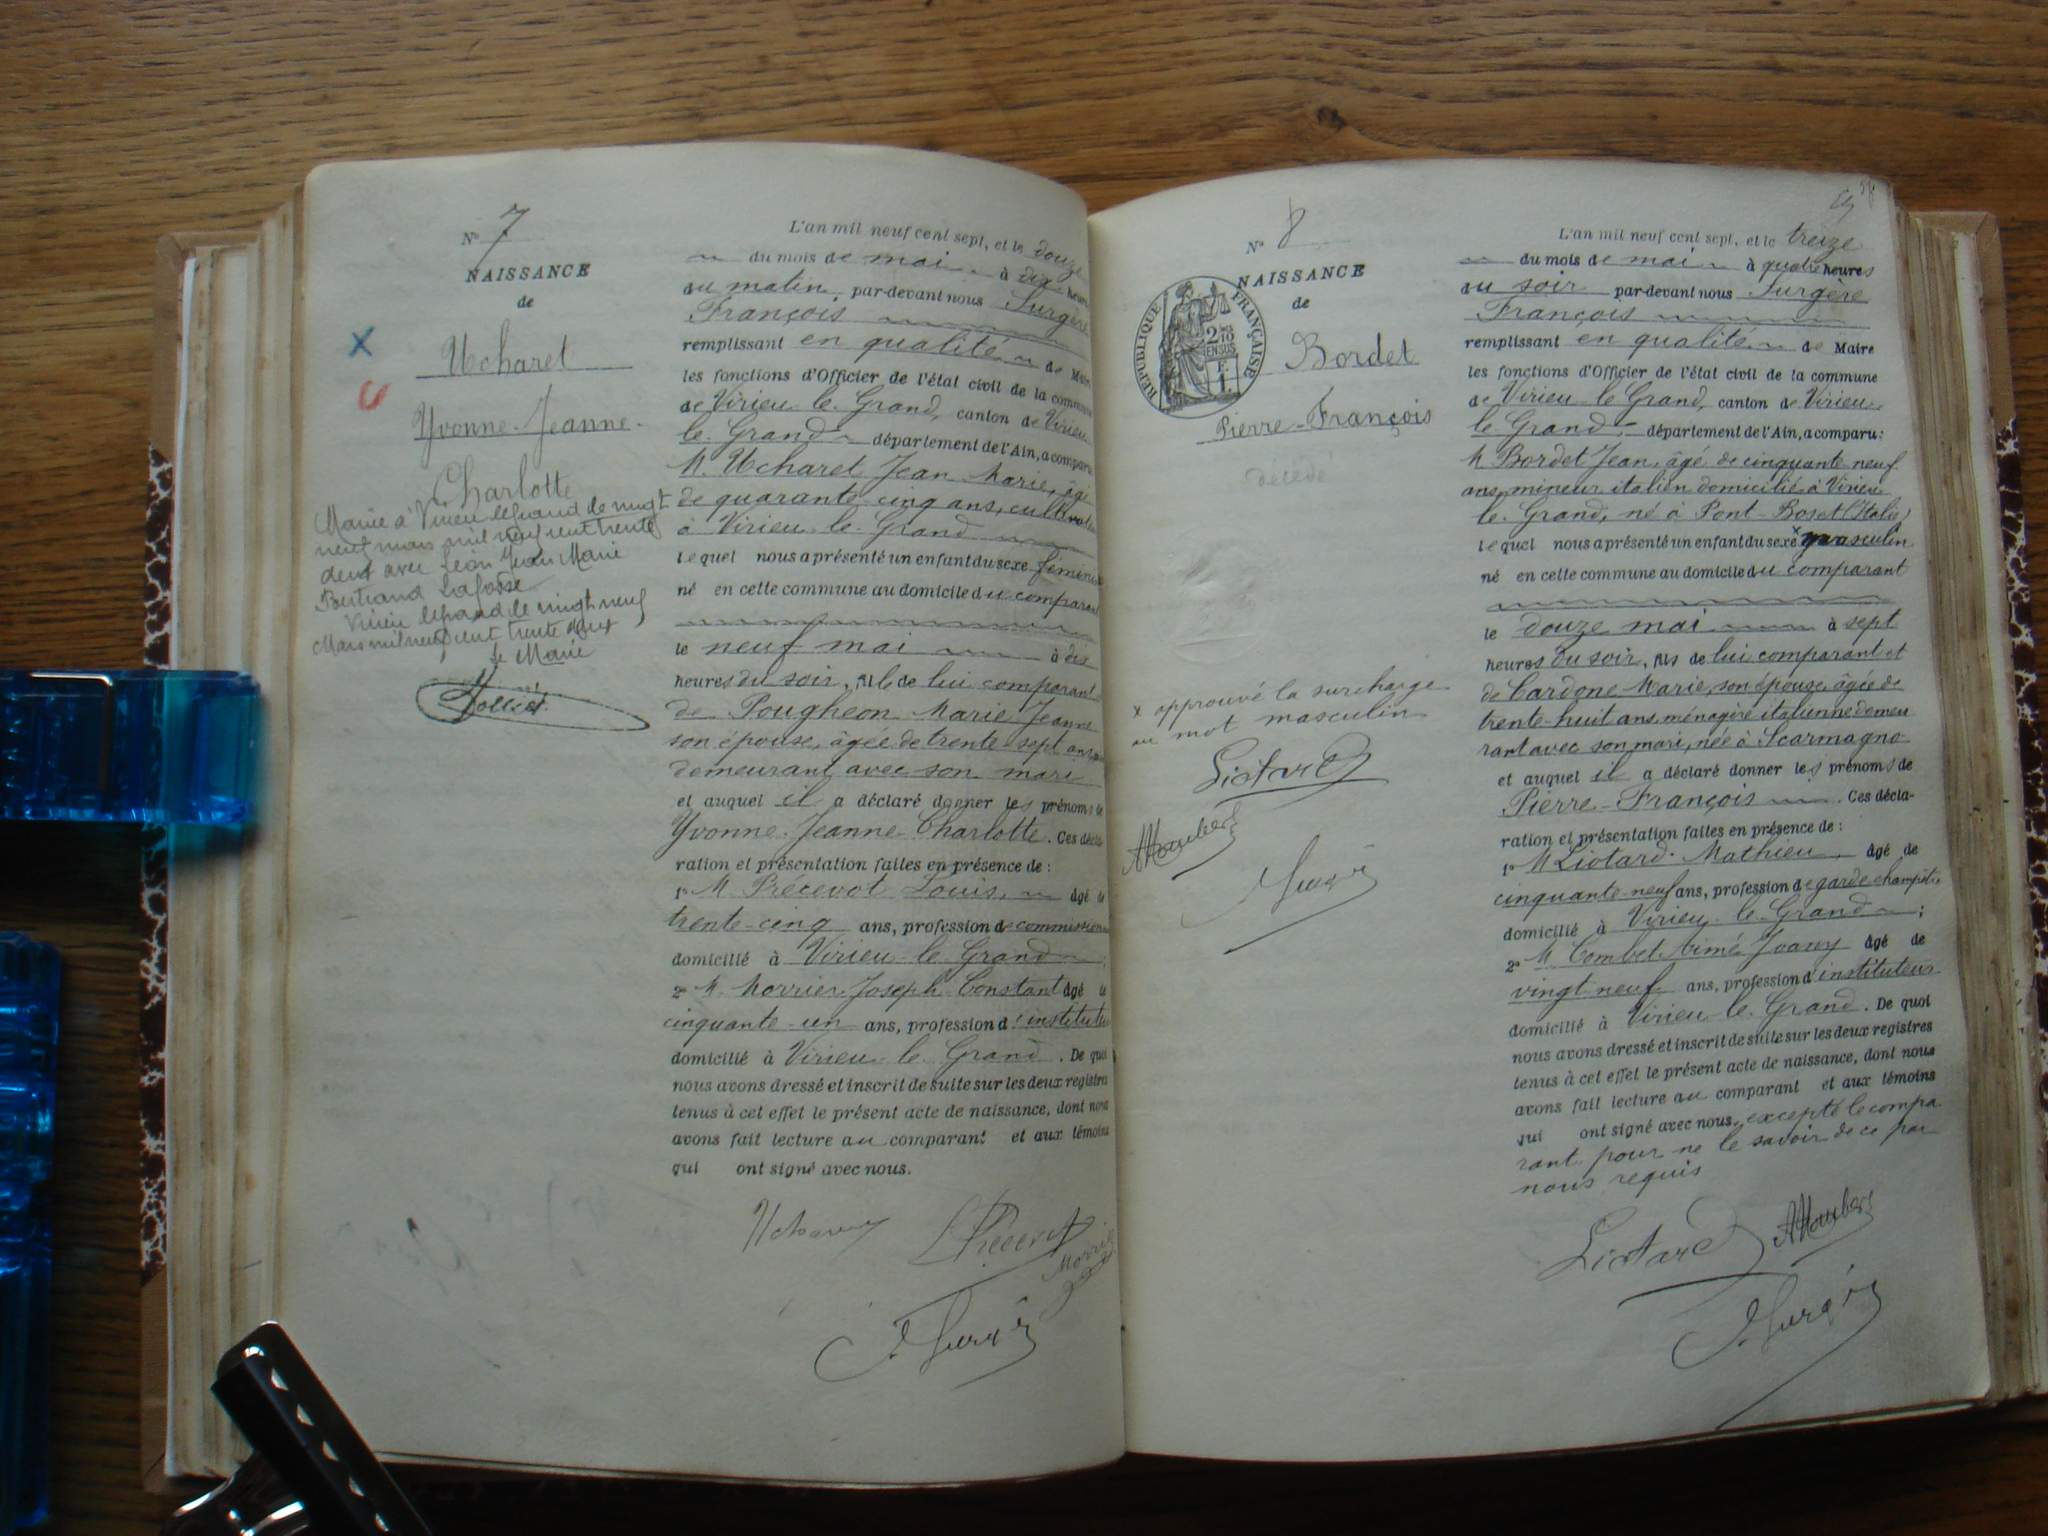 N° 7
NAISSANCE
de
Ucharet
Yvonne-Jeanne-
Charlotte
Mariée à Virieu le grand le vingt
neuf mars mil neuf cent trente
deux avec Léon Jean Marie
Bertrand Lafosse
Virieu le grand le vingt neuf
Mars mil neuf cent trente deux
Le Maire
L'an mil neuf cent sept, et le douze
du mois de mai à dix heures
du matin, par-devant nous Surgère
François
remplissant en qualité de Maire
les fonctions d'Officier de l'état civil de la commune
de Virieu-le-Grand, canton de Virieu
le-Grand département de l'Ain, a comparu
M. Ucharet Jean Marie, âgé
de quarante cinq ans, cultivateur
à Virieu-le-Grand
lequel nous a présenté un enfant du sexe féminin
né en cette commune au domicile du comparant
le neuf mai à dix
heures du soir, fille de lui comparant
de Pougheon Marie Jeanne
son épouse, âgée de trente-sept ans,
demeurant avec son mari
et auquel il a déclaré donner les prénoms de
Yvonne-Jeanne-Charlotte. Ces décla-
ration et présentation faites en présence de :
1° M. Précevot Louis, âgé de
trente-cinq ans, profession de commission
domicilié à Virieu-le-Grand
2° M. Morrier Joseph Constant âgé de
cinquante-un ans, profession d'instituteur
domicilié à Virieu-le-Grand. De quoi
nous avons dressé et inscrit de suite sur les deux registres
tenus à cet effet le présent acte de naissance, dont nous
avons fait lecture au comparant et aux témoins
qui ont signé avec nous.
Ucharet LPrécevot
Morrier
F. Surgère
N° 8
NAISSANCE
de
RÉPUBLIQUE FRANÇAISE
2/10 EN SUS
Bordet
Pierre-François
Décédé
x approuvé la surcharge
au mot masculin
Liotard
Surgère
L'an mil neuf cent sept, et le treize
du mois de mai à quatre heures
du soir par-devant nous Surgère
François
remplissant en qualité de Maire
les fonctions d'Officier de l'état civil de la commune
de Virieu-le-Grand, canton de Virieu-
le-Grand département de l'Ain, a comparu :
M Bordet Jean, âgé de cinquante neuf
ans, mineur italien domicilié à Virieu
le-Grand, né à Pont-Boset (Italie)
lequel nous a présenté un enfant du sexe x masculin
né en cette commune au domicile du comparant
le douze mai à sept
heures du soir, fils de lui comparant et
de Cardone Marie, son épouse, âgée de
trente-huit ans, ménagère italienne demeu
rant avec son mari, née à Scarmagno
et auquel il a déclaré donner les prénoms de
Pierre-François. Ces décla-
ration et présentation faites en présence de :
1° M Liotard Mathieu, âgé de
cinquante-neuf ans, profession de garde champêtre
domicilié à Virieu-le-Grand ;
2° M Combet Aimé Joany âgé de
vingt neuf ans, profession d'instituteur
domicilié à Virieu-le-Grand. De quoi
nous avons dressé et inscrit de suite sur les deux registres
tenus à cet effet le présent acte de naissance, dont nous
avons fait lecture au comparant et aux témoins
qui ont signé avec nous, excepté le compa
rant pour ne le savoir de ce par
nous requis
Liotard
F. Surgère